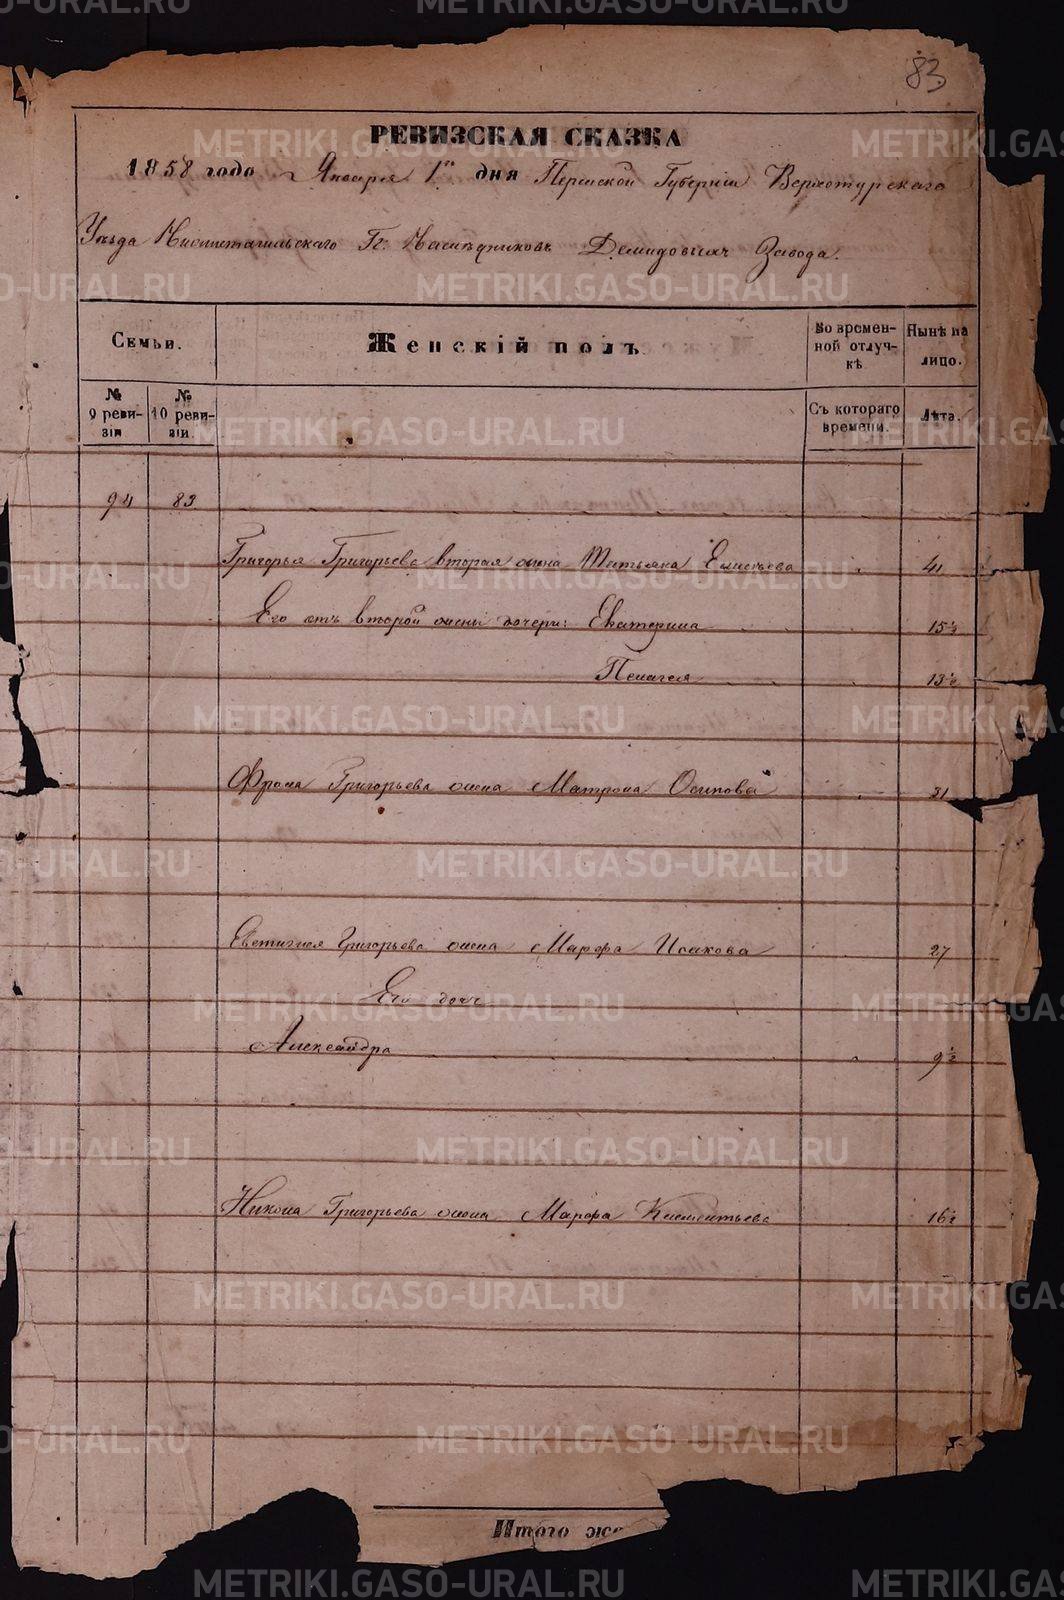 83
РЕВИЗСКАЯ СКАЗКА
1858 года Января 1го дня Пермской Губерніи Верхотурскаго
Уѣзда Нижнетагильскаго Гг. Наслѣдниковъ Демидовыхъ Завода.
Семьи.
Женскій полъ
Во времен-
ной отлуч-
кѣ.
Нынѣ на
лицо.
№
9 реви-
зіи
№
10 реви-
зіи.
Съ котораго
времени.
Лѣта.
94 83
Григорья Григорьева вторая жена Татьяна Елисѣева 41
Его отъ второй жены дочери: Екатерина 15½
Пелагея 13½
Фрола Григорьева жена Матрона Осипова 31
Евтигнея Григорьева жена Марфа Исакова 27
Его дочь
Александра 9½
Никона Григорьева жена Марфа Клементьева 16½
Итого же
METRIKI.GASO-URAL.RU